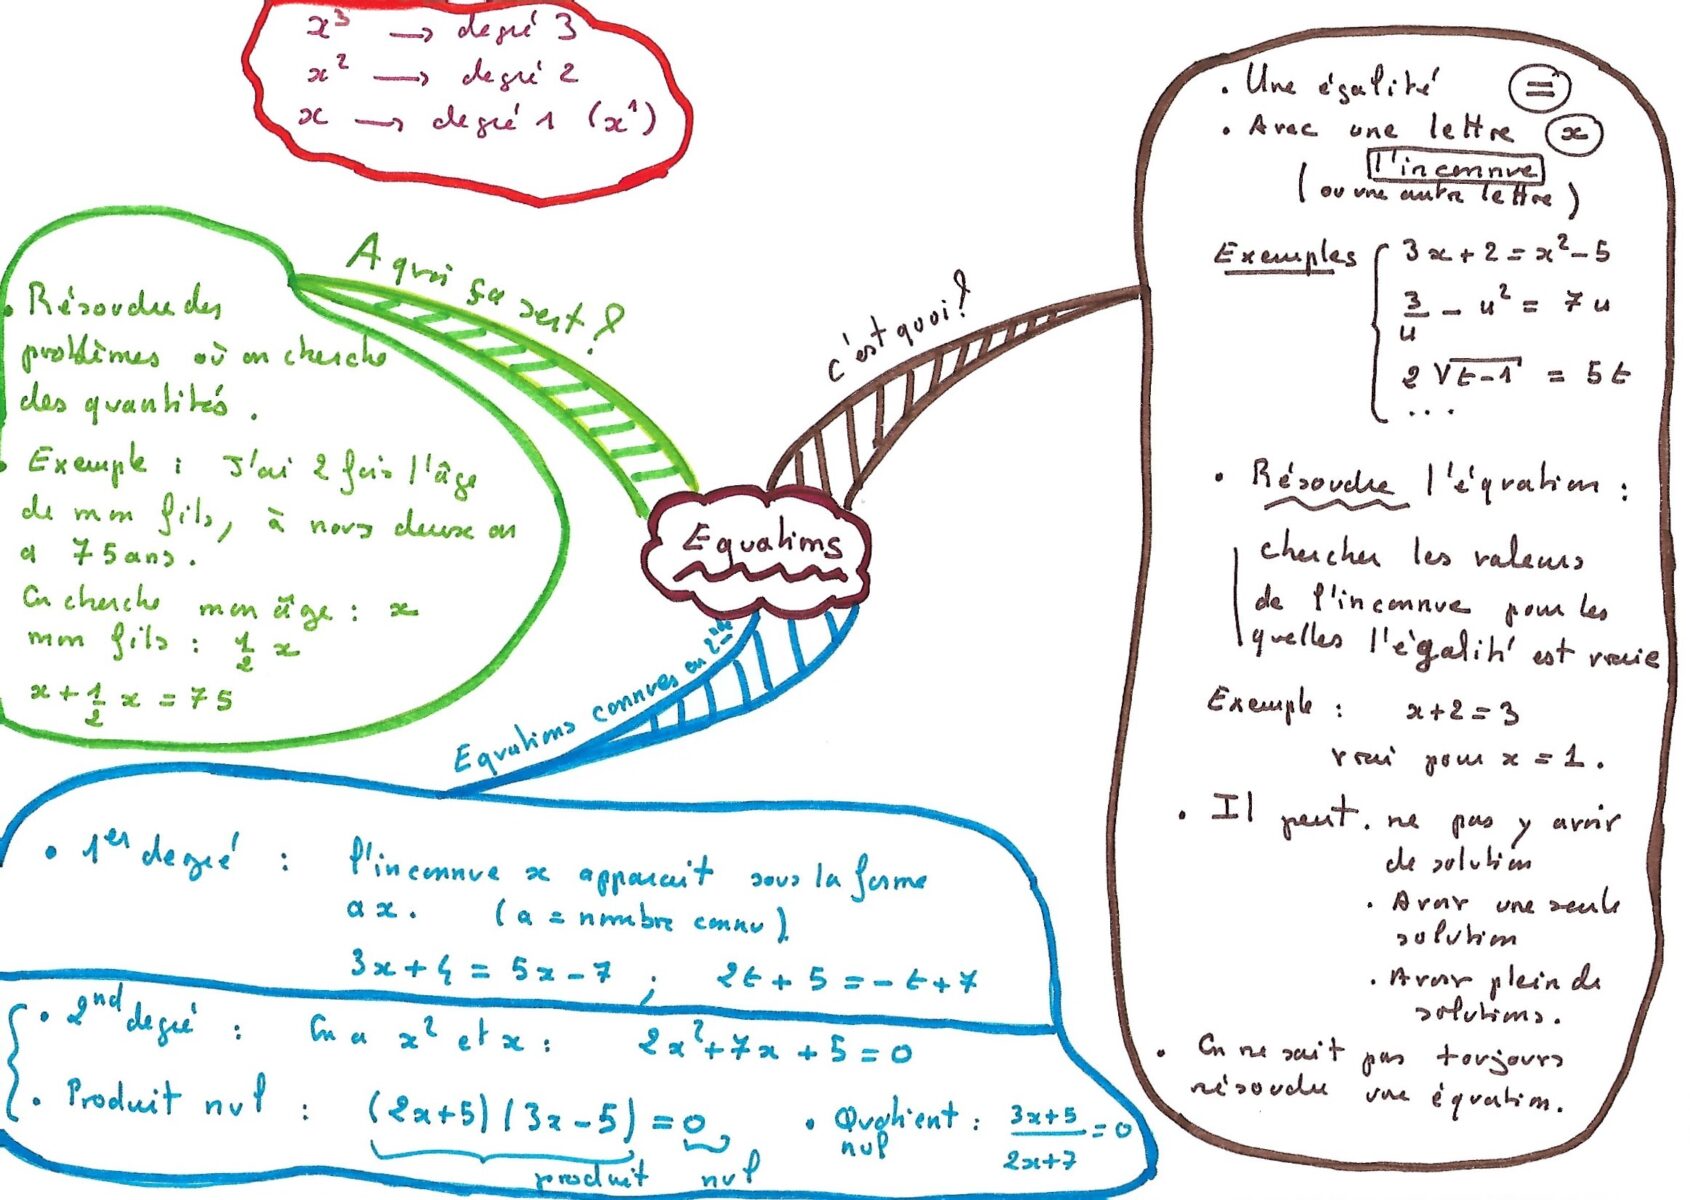 x³ → degré 3
x² → degré 2
x → degré 1 (x¹)
A quoi ça sert ?
• Résoudre des
problèmes où on cherche
des quantités.
• Exemple : J'ai 2 fois l'âge
de mon fils, à nous deux on
a 75 ans.
On cherche mon âge : x
mon fils : 1/2 x
x + 1/2 x = 75
c'est quoi ?
• Une égalité =
• Avec une lettre x
l'inconnue
(ou une autre lettre)
Exemples { 3x + 2 = x² - 5
3/u - u² = 7u
2 √(t-1) = 5t
...
• Résoudre l'équation :
chercher les valeurs
de l'inconnue pour les
quelles l'égalité est vraie
Exemple : x + 2 = 3
vrai pour x = 1.
• Il peut • ne pas y avoir
de solution
• Avoir une seule
solution
• Avoir plein de
solutions.
• On ne sait pas toujours
résoudre une équation.
Equations
Equations connues en 2nde
• 1er degré : l'inconnue x apparait sous la forme
ax. (a = nombre connu).
3x + 4 = 5x - 7 ; 2t + 5 = -t + 7
• 2nd degré : On a x² et x : 2x² + 7x + 5 = 0
• Produit nul : (2x+5)(3x-5) = 0
produit nul
• Quotient : (3x+5)/(2x+7) = 0
nul